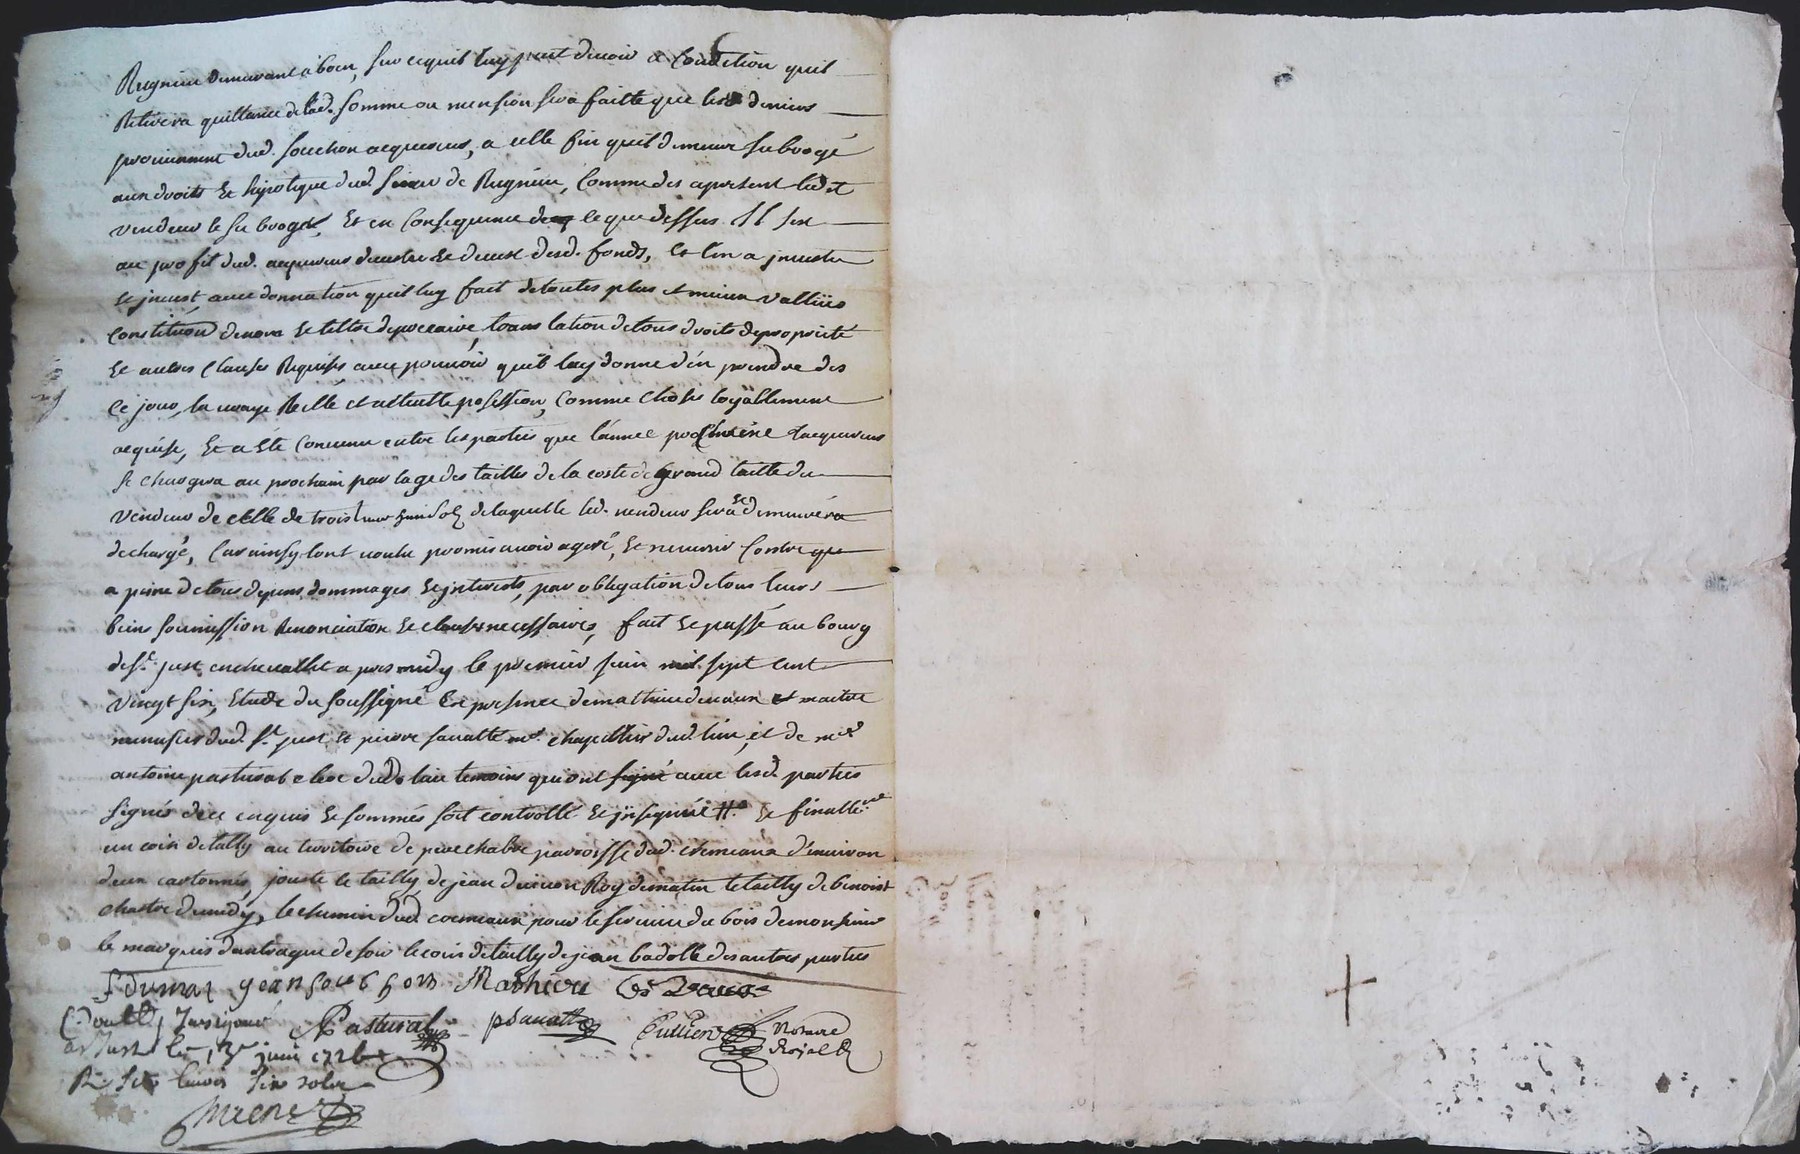 Rugnieu demeurant à boen, sur ce quil luy peut devoir a Condition quil
Retirera quittance de lad. somme ou mension sera faitte que les deniers
proviennent dud. souchon acquereur, a celle fin quil demeure subrogé
aux droits et hipoteque dud. sieur de Rugnieu, Comme des apresent led.
vendeur le subroge, Et en Consequence de ce que dessus Il sest
au profit dud. acquereur desdits fonds, et len a jnvestu
et jnvest, avec donnation quil luy fait de toutes plus et mieux vallües
Constitution de nova et tiltre de precaire, translation de tous droits de proprieté
Et autres Clauses Requises avec pouvoir quil luy donne d'en prendre des
Ce jour, la vraye Relle et actuelle posession, Comme choses loyallement
acquise, Et a été Convenu entre les parties que lannee prochaine lacquereur
se chargera au prochain partage des tailles de la coste de grand taille du
vendeur de celle de trois sols de laquelle led. vendeur sera et demeurera
dechargé, Car ainsy lont voulu promis avoir agreé, Et ne venir Contre
a peine de tous depens dommages et jnterests, par obligation de tous leurs
biens soumission Renonciation et clauses necessaires, fait et passé au bourg
de st. just en chevallet apres midy le premier juin mil sept cent
vingt six, Etude du soussigné En presence de mathieu devaux maitre
menusier dud. st. just et pierre savatte mr. chapellier dud. lieu, et de me
antoine pastural clerc dud. lieu temoins qui ont signé avec lesd. parties
signés de ce enquis et sommés soit controllé et jnsignüé #. et finallemt.
un coin de tailly au territoire de parroisse dud. cremeaux d'environ
deux cartonnés, jouste le tailly de jean Roy de matin le tailly de benoist
chastre de midy, le chemin dud. cremeaux pour le service du bois de monsieur
le marquis dantrague de soir le coin de tailly de jean badolle des autres parties
f dumas jean souchon Mathieu Des Devaux
Controllé Jnsignué Pastural psavatte Cuttier Notaire
a st Just le 13e juin 1726 Royal
R six livres six sols